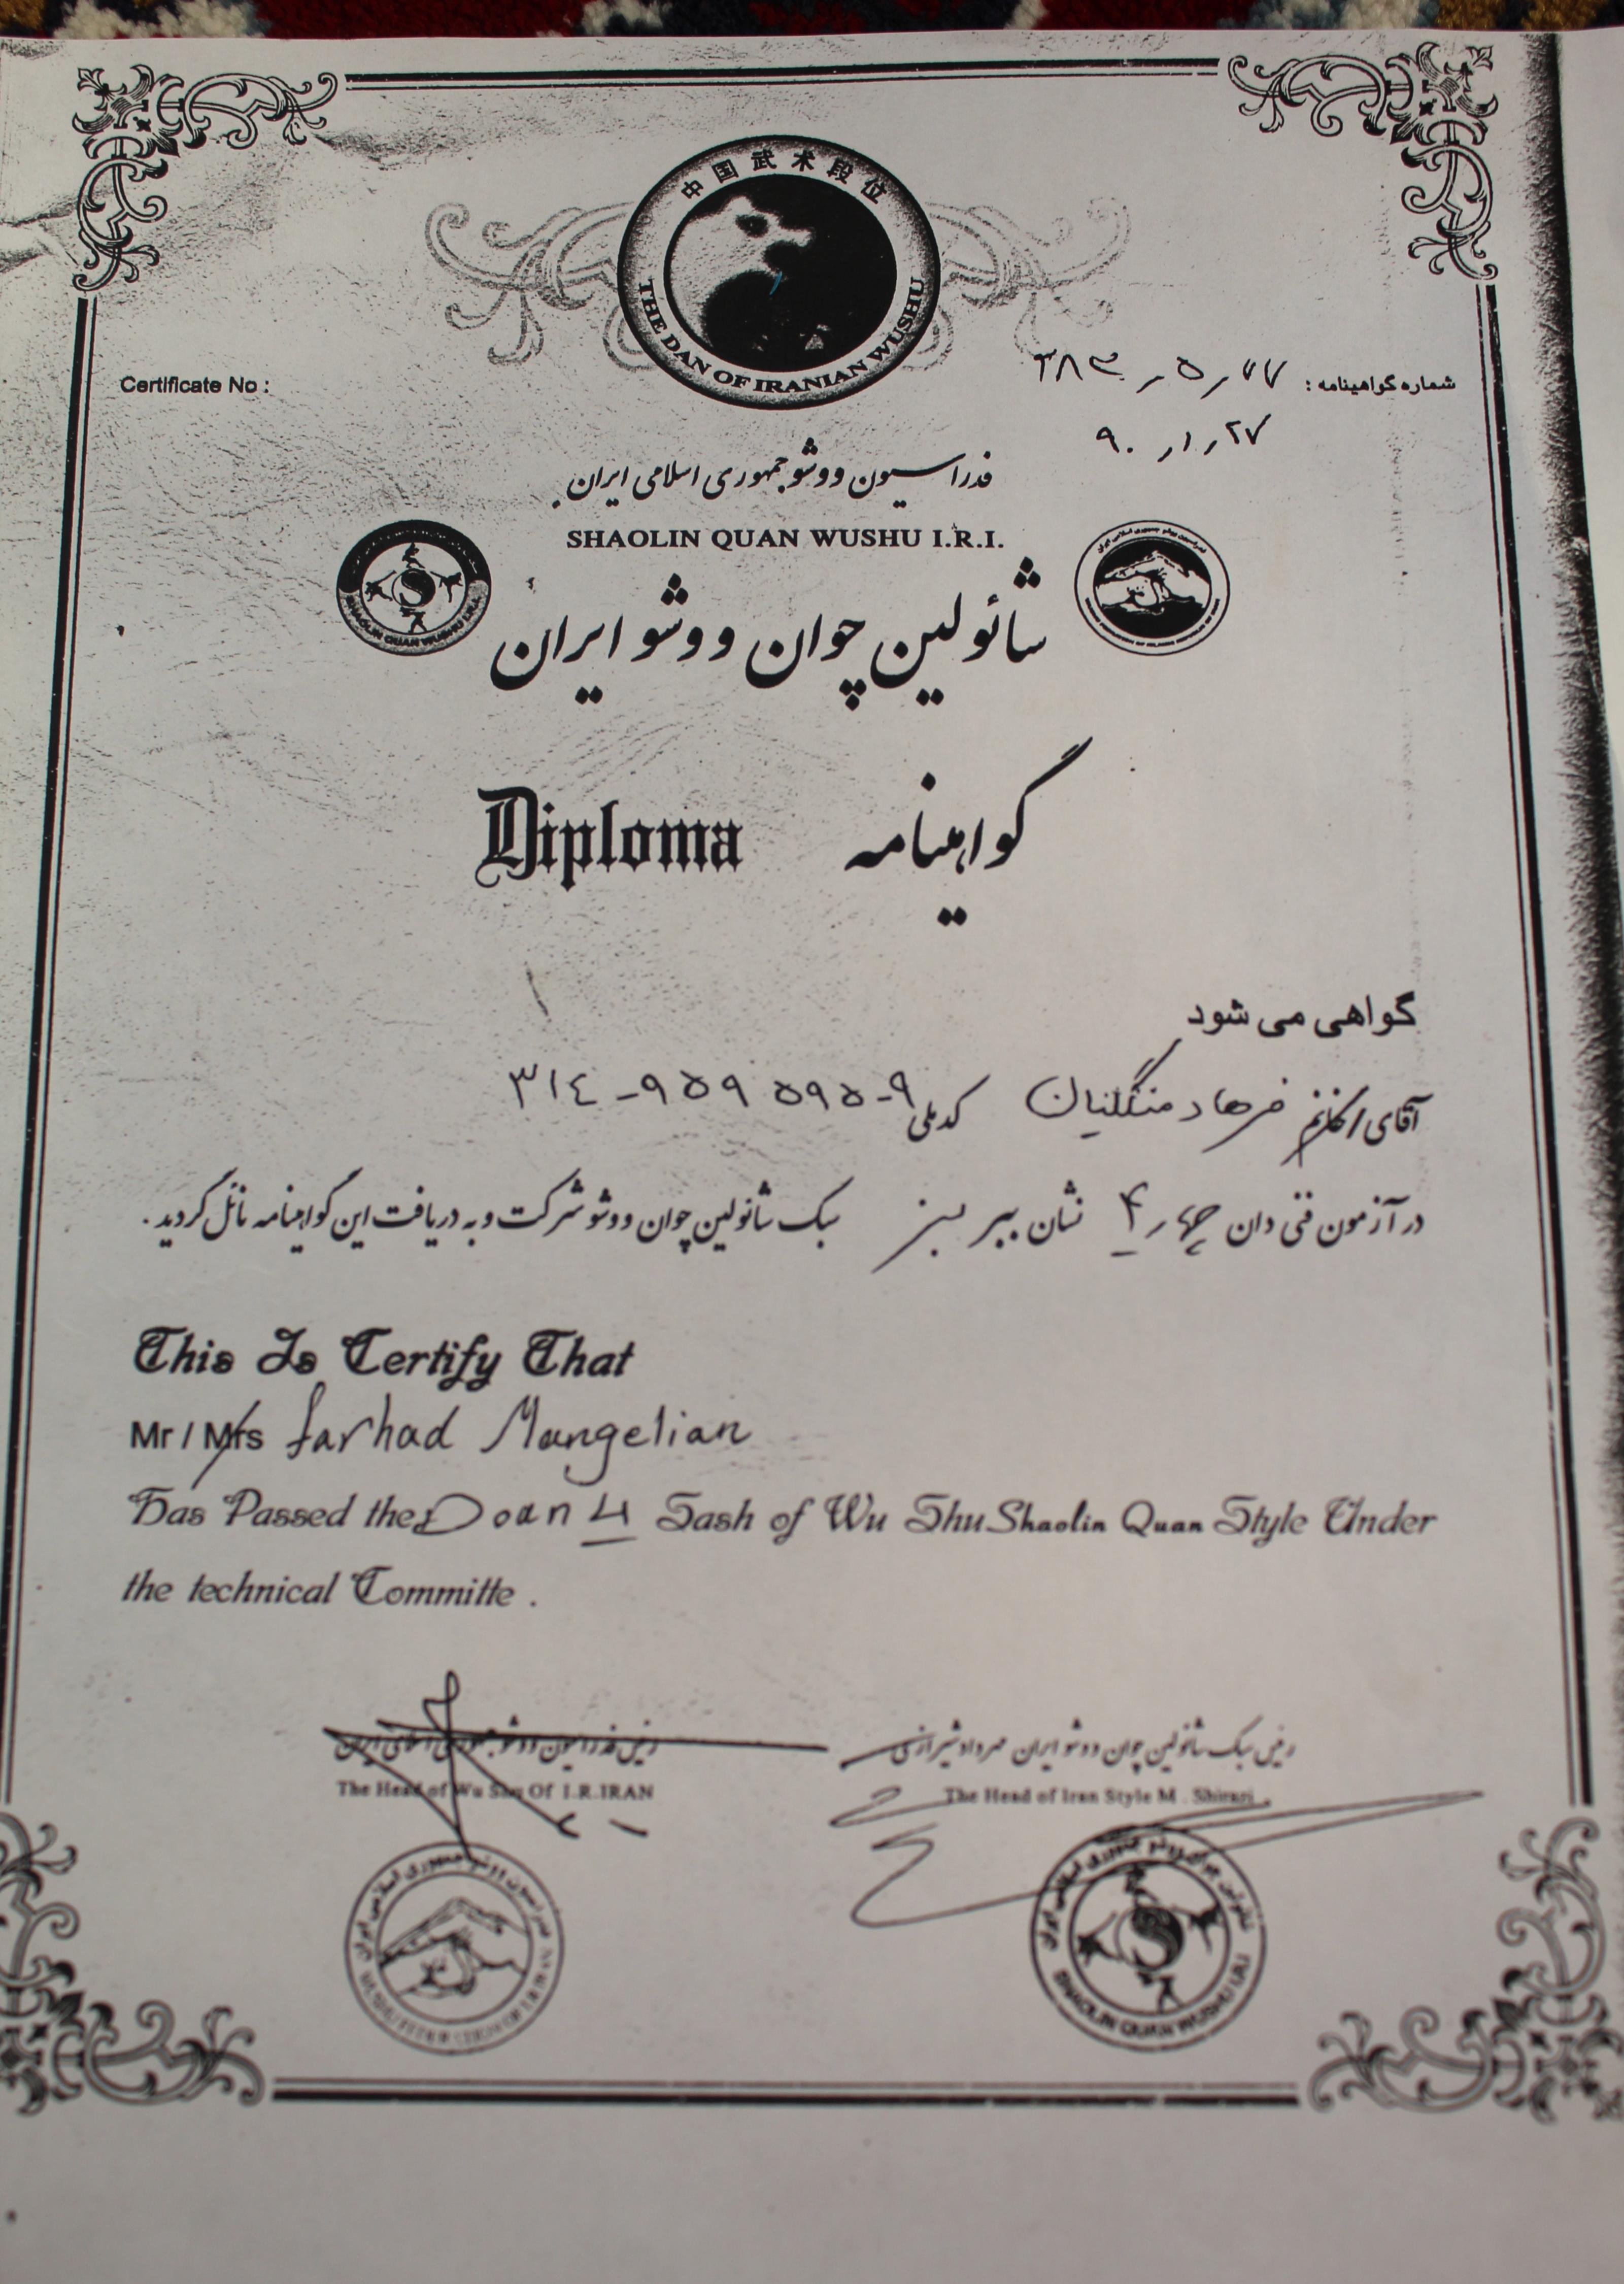 中国武术段位
THE DAN OF IRANIAN WUSHU
Certificate No :
شماره گواهینامه :
۹۰/۱/۲۷
فدراسیون ووشو جمهوری اسلامی ایران
SHAOLIN QUAN WUSHU I.R.I.
SHAOLIN QUAN WUSHU I.R.I.
شائولین چوان ووشو ایران
Diploma گواهینامه
گواهی می شود
آقای / خانم فرهاد منگلیان کد ملی ۳۱٤-۹۵۹۵۹۵-۹
در آزمون فنی دان چهار ۴ نشان ببر سبز سبک شائولین چوان ووشو شرکت و به دریافت این گواهینامه نائل گردید .
This Is Certify That
Mr / Mrs farhad Mangelian
Has Passed the Doan 4 Sash of Wu Shu Shaolin Quan Style Under
the technical Committe .
رئیس فدراسیون ووشو جمهوری اسلامی ایران
رئیس سبک شائولین چوان ووشو ایران مهرداد شیرازی
The Head of Wu Shu Of I.R.IRAN
The Head of Iran Style M . Shirazi
فدراسیون ووشو جمهوری اسلامی ایران
SHAOLIN QUAN WUSHU I.R.I